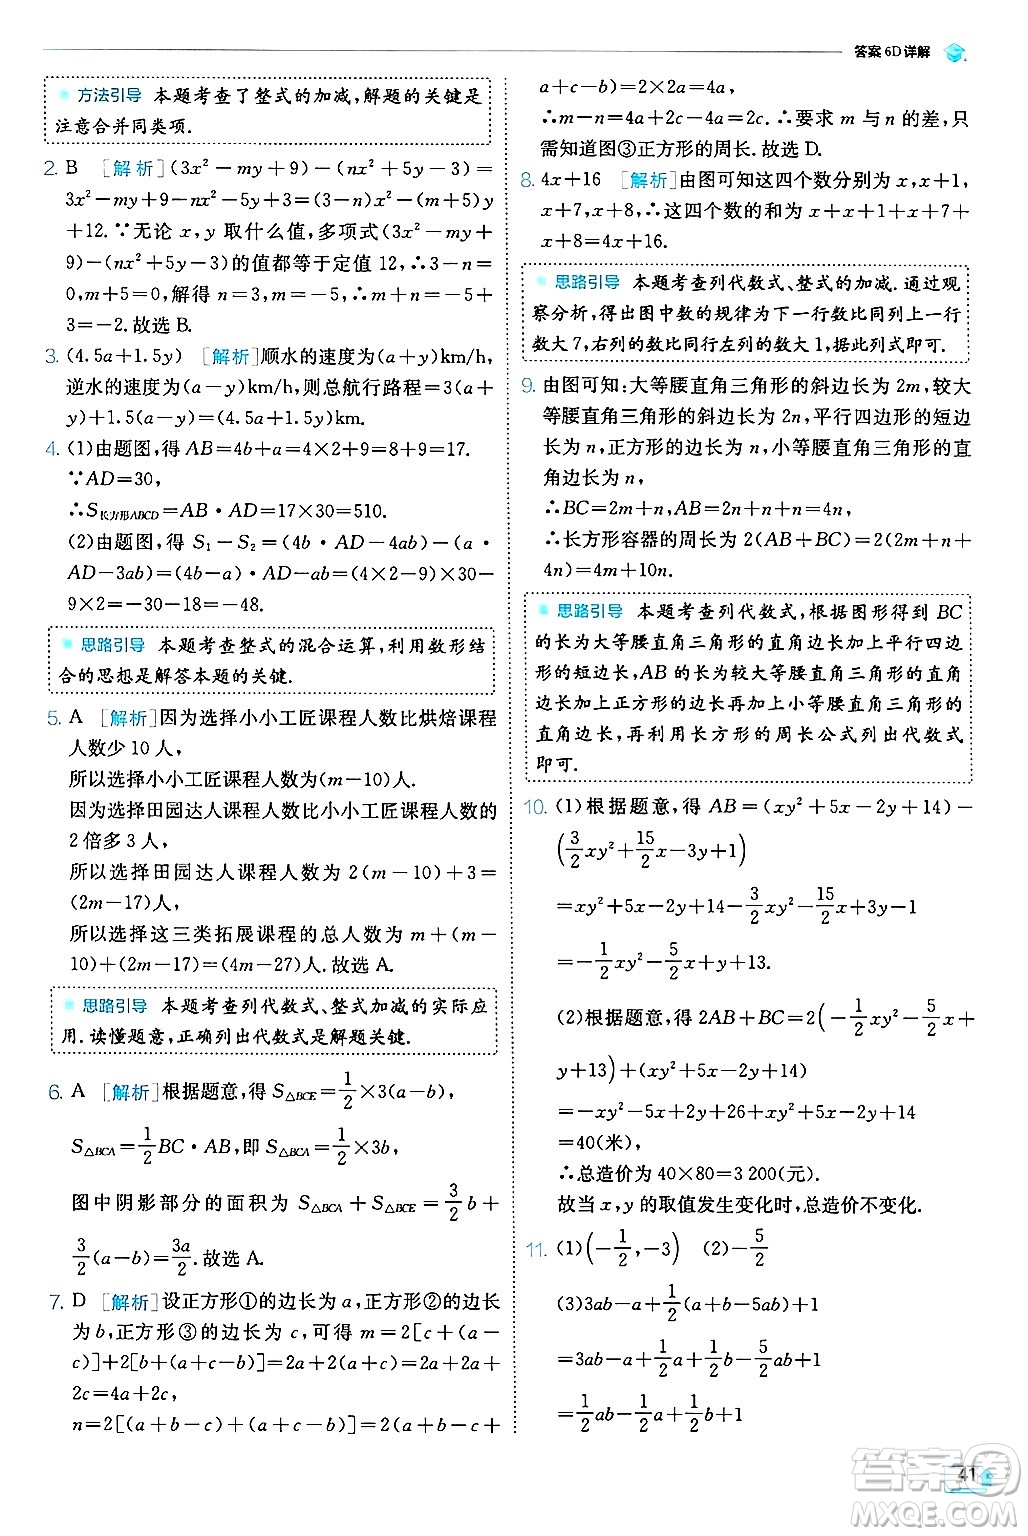 答案 6D 详解
方法引导 本题考查了整式的加减,解题的关键是
注意合并同类项.
2. B [解析](3x²－my＋9)－(nx²＋5y－3)＝
3x²－my＋9－nx²－5y＋3＝(3－n)x²－(m＋5)y
＋12.∵无论 x,y 取什么值,多项式(3x²－my＋
9)－(nx²＋5y－3)的值都等于定值 12,∴3－n＝
0,m＋5＝0,解得 n＝3,m＝－5,∴m＋n＝－5＋
3＝－2.故选 B.
3. (4.5a＋1.5y) [解析]顺水的速度为(a＋y)km/h,
逆水的速度为(a－y)km/h,则总航行路程＝3(a＋
y)＋1.5(a－y)＝(4.5a＋1.5y)km.
4. (1)由题图,得 AB＝4b＋a＝4×2＋9＝8＋9＝17.
∵AD＝30,
∴S长方形ABCD＝AB·AD＝17×30＝510.
(2)由题图,得 S₁－S₂＝(4b·AD－4ab)－(a·
AD－3ab)＝(4b－a)·AD－ab＝(4×2－9)×30－
9×2＝－1×30－18＝－30－18＝－48.
思路引导 本题考查整式的混合运算,利用数形结
合的思想是解答本题的关键.
5. A [解析]因为选择小小工匠课程人数比烘焙课程
人数少 10 人,
所以选择小小工匠课程人数为(m－10)人.
因为选择田园达人课程人数比小小工匠课程人数的
2 倍多 3 人,
所以选择田园达人课程人数为 2(m－10)＋3＝
(2m－17)人,
所以选择这三类拓展课程的总人数为 m＋(m－
10)＋(2m－17)＝(4m－27)人.故选 A.
思路引导 本题考查列代数式、整式加减的实际应
用.读懂题意,正确列出代数式是解题关键.
6. A [解析]根据题意,得 S△BCE＝1/2×3(a－b),
S△BCA＝1/2BC·AB,即 S△BCA＝1/2×3b,
图中阴影部分的面积为 S△BCA＋S△BCE＝3/2b＋
3/2(a－b)＝3a/2.故选 A.
7. D [解析]设正方形①的边长为 a,正方形②的边长
为 b,正方形③的边长为 c,可得 m＝2[c＋(a－
c)]＋2[b＋(a＋c－b)]＝2a＋2(a＋c)＝2a＋2a＋
2c＝4a＋2c,
n＝2[(a＋b－c)＋(a＋c－b)]＝2(a＋b－c＋
a＋c－b)＝2×2a＝4a,
∴m－n＝4a＋2c－4a＝2c.∴要求 m 与 n 的差,只
需知道图③正方形的周长.故选 D.
8. 4x＋16 [解析]由图可知这四个数分别为 x,x＋1,
x＋7,x＋8,∴这四个数的和为 x＋x＋1＋x＋7＋
x＋8＝4x＋16.
思路引导 本题考查列代数式、整式的加减.通过观
察分析,得出图中数的规律为下一行数比同列上一行
数大 7,右列的数比同行左列的数大 1,据此列式即可.
9. 由图可知:大等腰直角三角形的斜边长为 2m,较大
等腰直角三角形的斜边长为 2n,平行四边形的短边
长为 n,正方形的边长为 n,小等腰直角三角形的直
角边长为 n,
∴BC＝2m＋n,AB＝2n＋n＋n＝4n,
∴长方形容器的周长为 2(AB＋BC)＝2(2m＋n＋
4n)＝4m＋10n.
思路引导 本题考查列代数式,根据图形得到 BC
的长为大等腰直角三角形的直角边长加上平行四边
形的短边长,AB 的长为较大等腰直角三角形的斜边
长加上正方形的边长加上小等腰直角三角形的
直角边长,再利用长方形的周长公式列出代数式
即可.
10. (1)根据题意,得 AB＝(xy²＋5x－2y＋14)－
(3/2xy²＋15/2x－3y＋1)
＝xy²＋5x－2y＋14－3/2xy²－15/2x＋3y－1
＝－1/2xy²－5/2x＋y＋13.
(2)根据题意,得 2AB＋BC＝2(－1/2xy²－5/2x＋
y＋13)＋(xy²＋5x－2y＋14)
＝－xy²－5x＋2y＋26＋xy²＋5x－2y＋14
＝40(米),
∴总造价为 40×80＝3 200(元).
故当 x,y 的取值发生变化时,总造价不变化.
11. (1)(－1/2,－3) (2)－5/2
(3)3ab－1/2a＋1/2b＋1/2(a＋b－5ab)＋1
＝3ab－1/2a＋1/2b＋1/2a＋1/2b－5/2ab＋1
＝1/2ab－1/2a＋1/2b＋1/2a＋1/2b＋1
41
答案圈
MXQE.COM